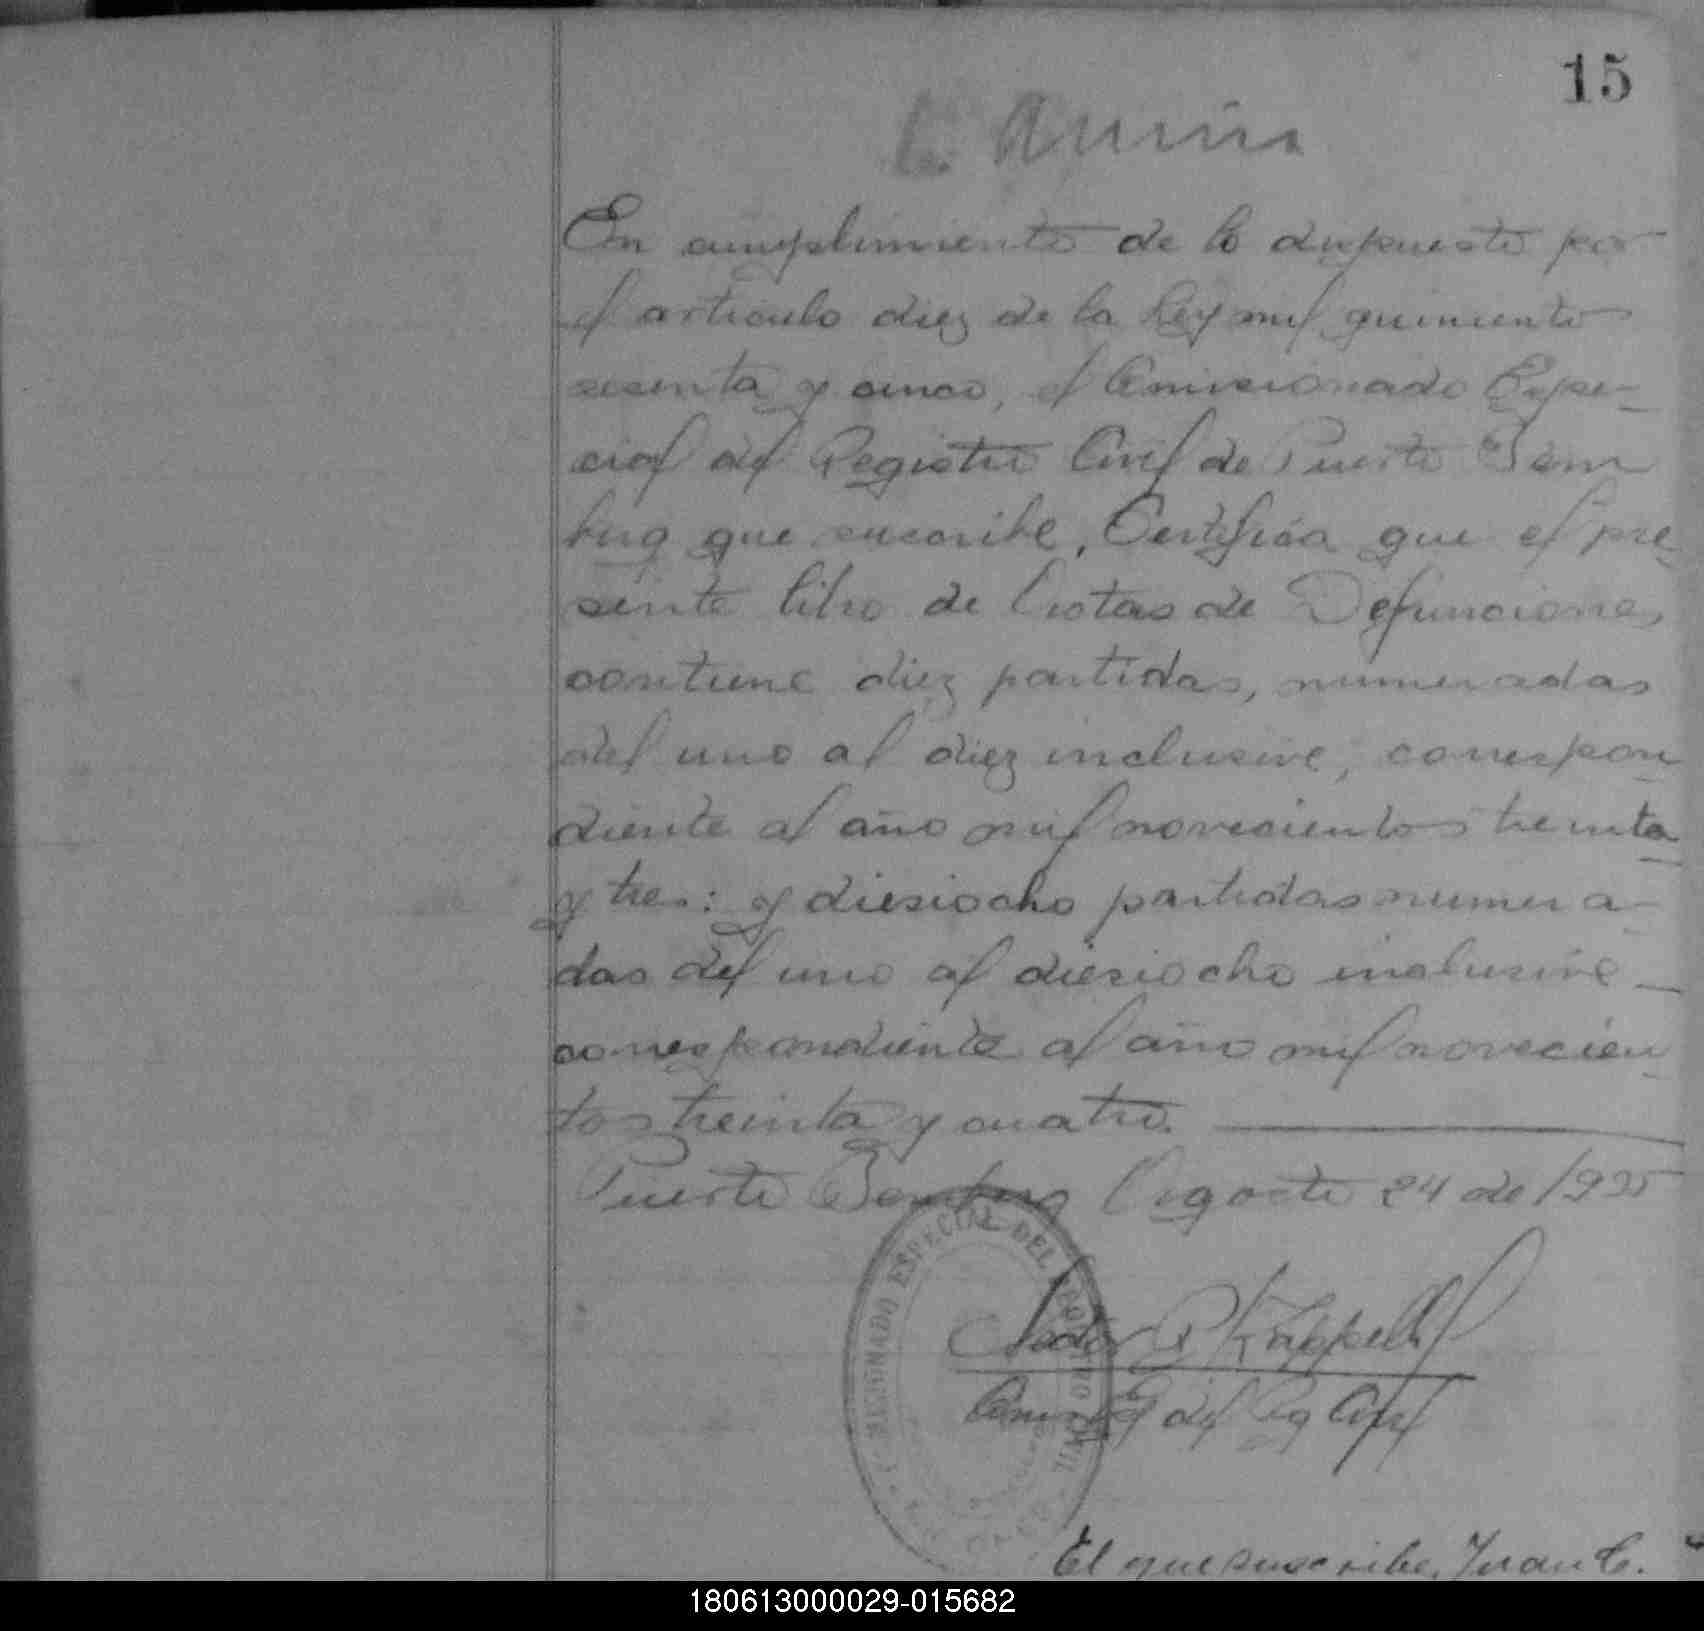 15
En cumplimiento de lo dispuesto por
el artículo diez de la Ley mil quiniento
sesenta y cinco, el Comisionado Espe-
cial del Registro Civil de Puerto Bem
berg que suscribe, Certifica que el pre-
sente libro de Actas de Defunciones
contiene diez partidas, numeradas
del uno al diez inclusive, correspon
diente al año mil novecientos treinta
y tres: y diesiocho partidas numera-
das del uno al diesiocho inclusive
correspondiente al año mil novecien
tos treinta y cuatro.
Puerto Bemberg Agosto 24 de 1935
ESPECIAL DEL CIVIL
P. Kappell
del Reg Civil
El que suscribe, Juan C.
180613000029-015682